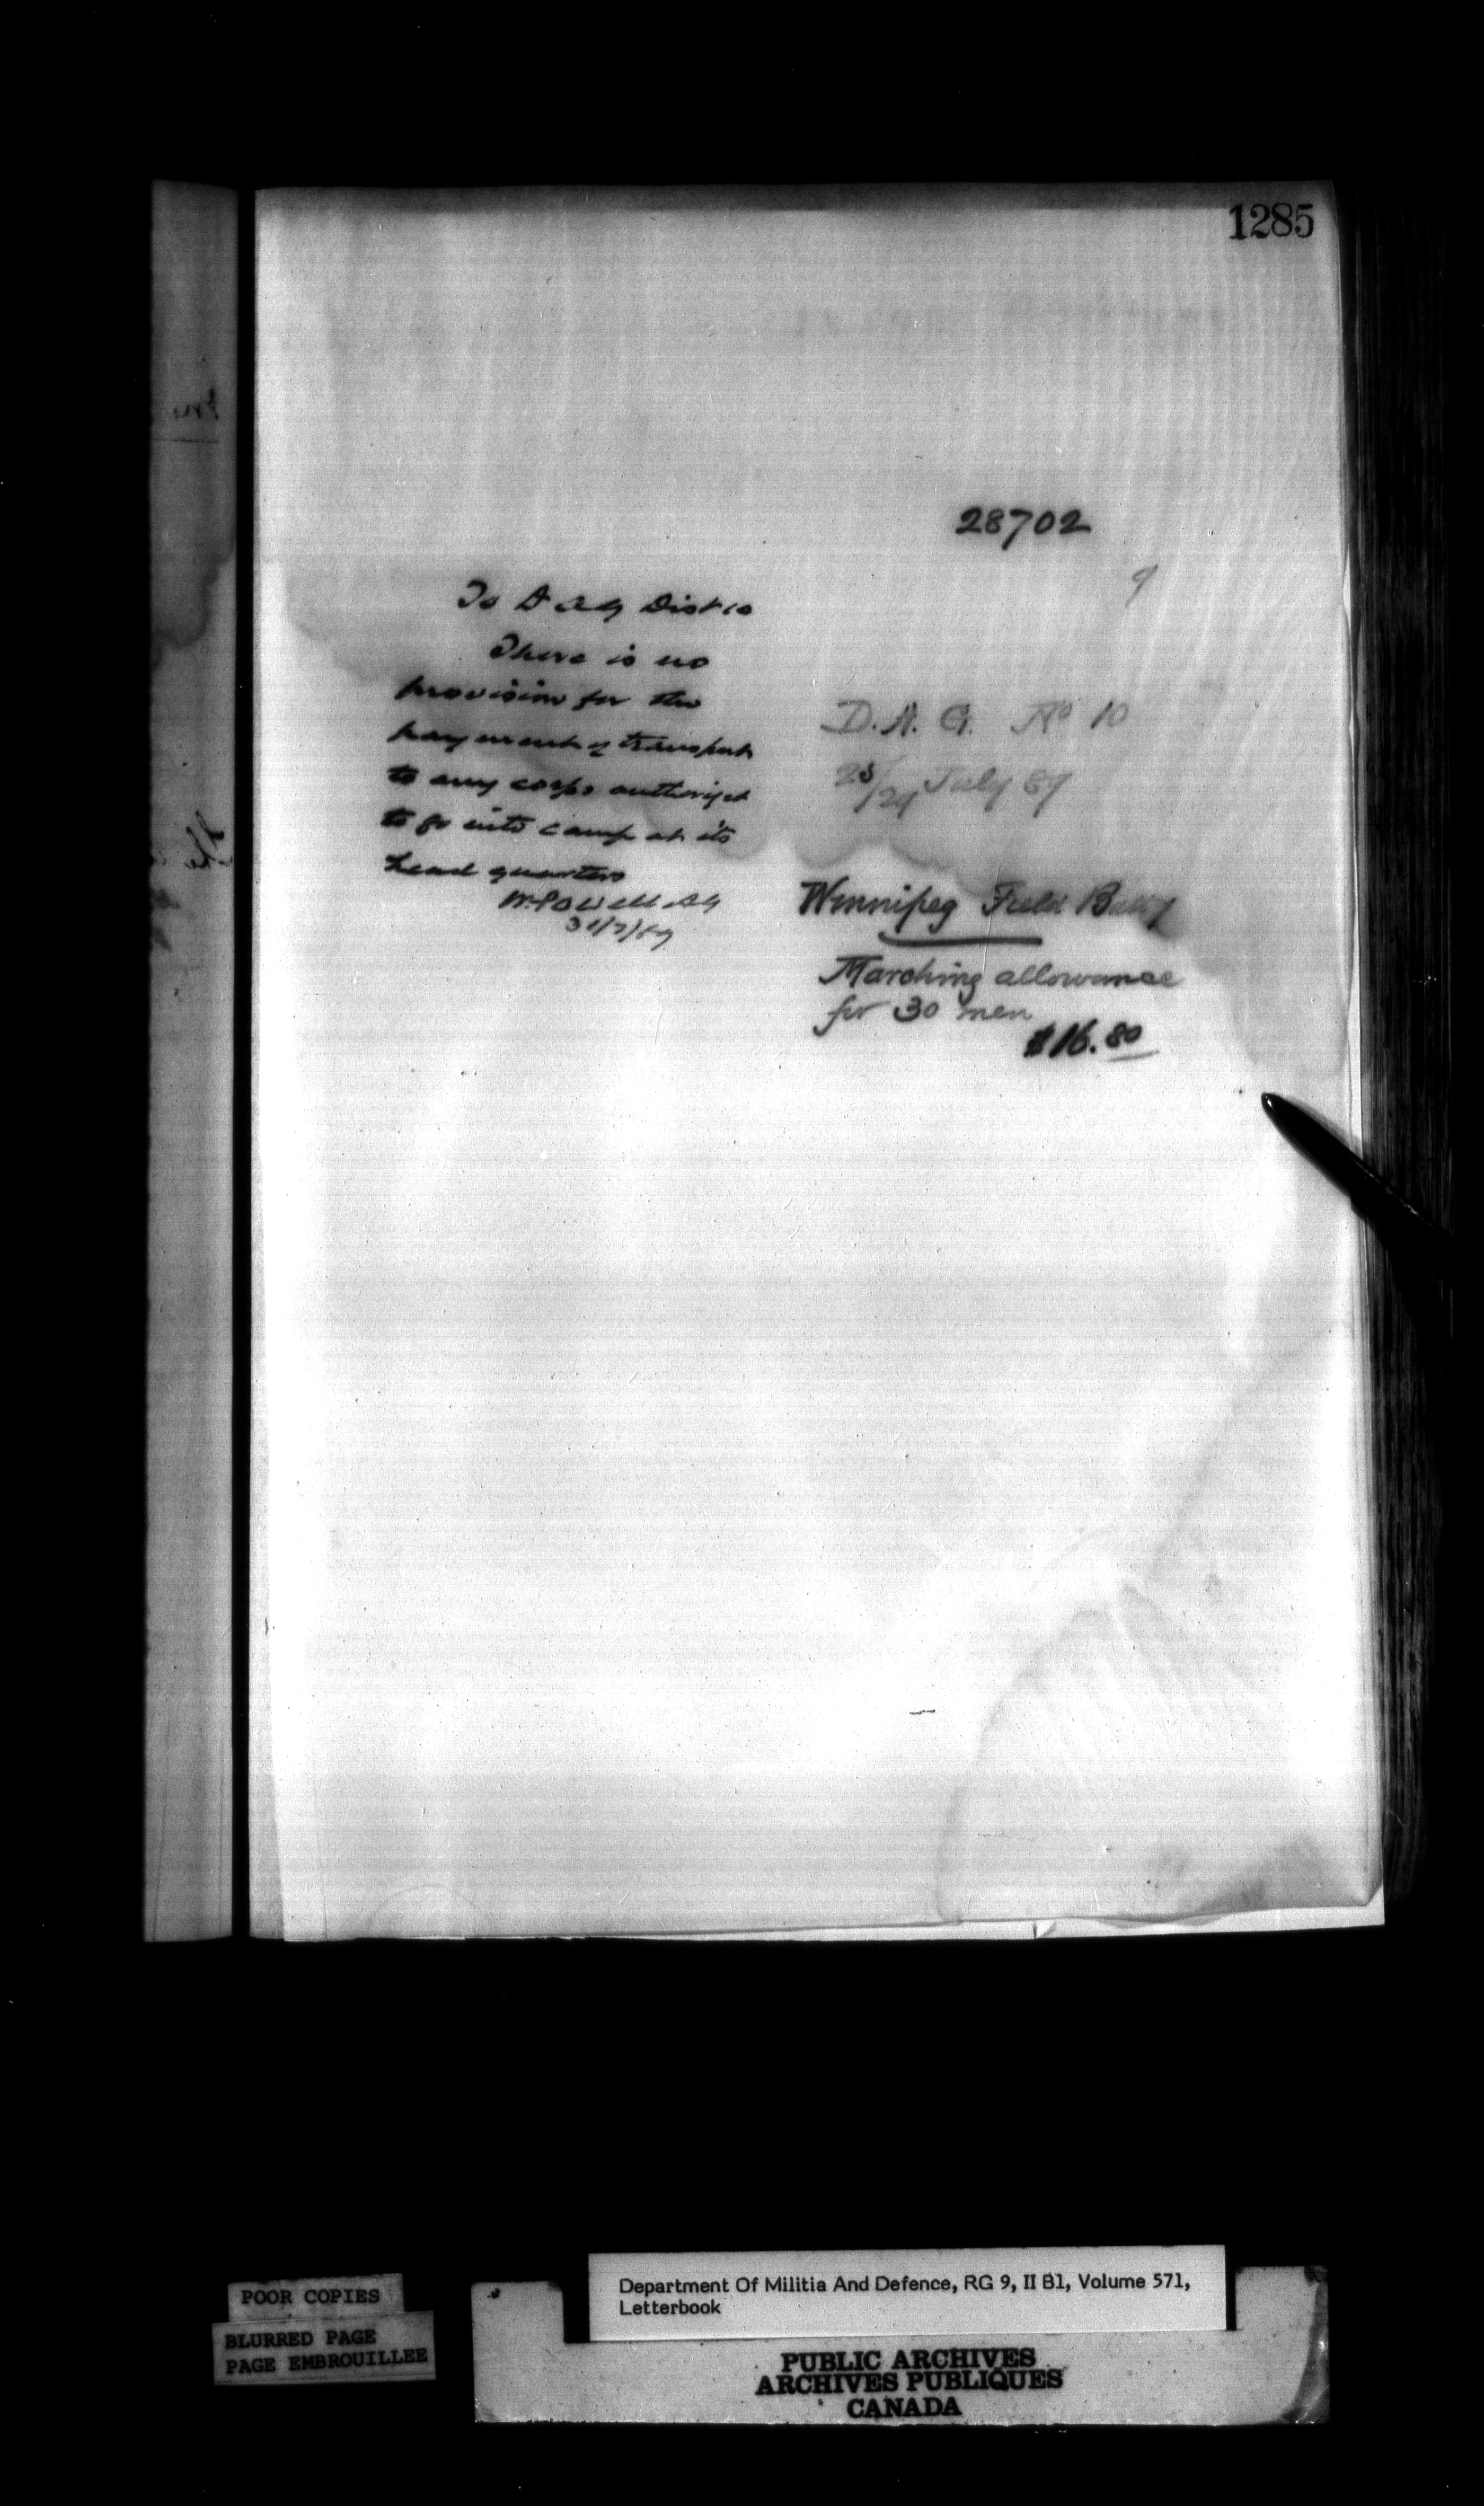 1285
28702
9
To D A G Dist 10
There is no
provision for the
payment of transport
to any corps authorized
to go into camp at its
head quarters
W. Powell AG
31/7/89
D. A. G. No 10
25/29 July 89
Winnipeg Field Batty
Marching allowance
for 30 men
$16.80
POOR COPIES
BLURRED PAGE
PAGE EMBROUILLEE
Department Of Militia And Defence, RG 9, II B1, Volume 571,
Letterbook
PUBLIC ARCHIVES
ARCHIVES PUBLIQUES
CANADA